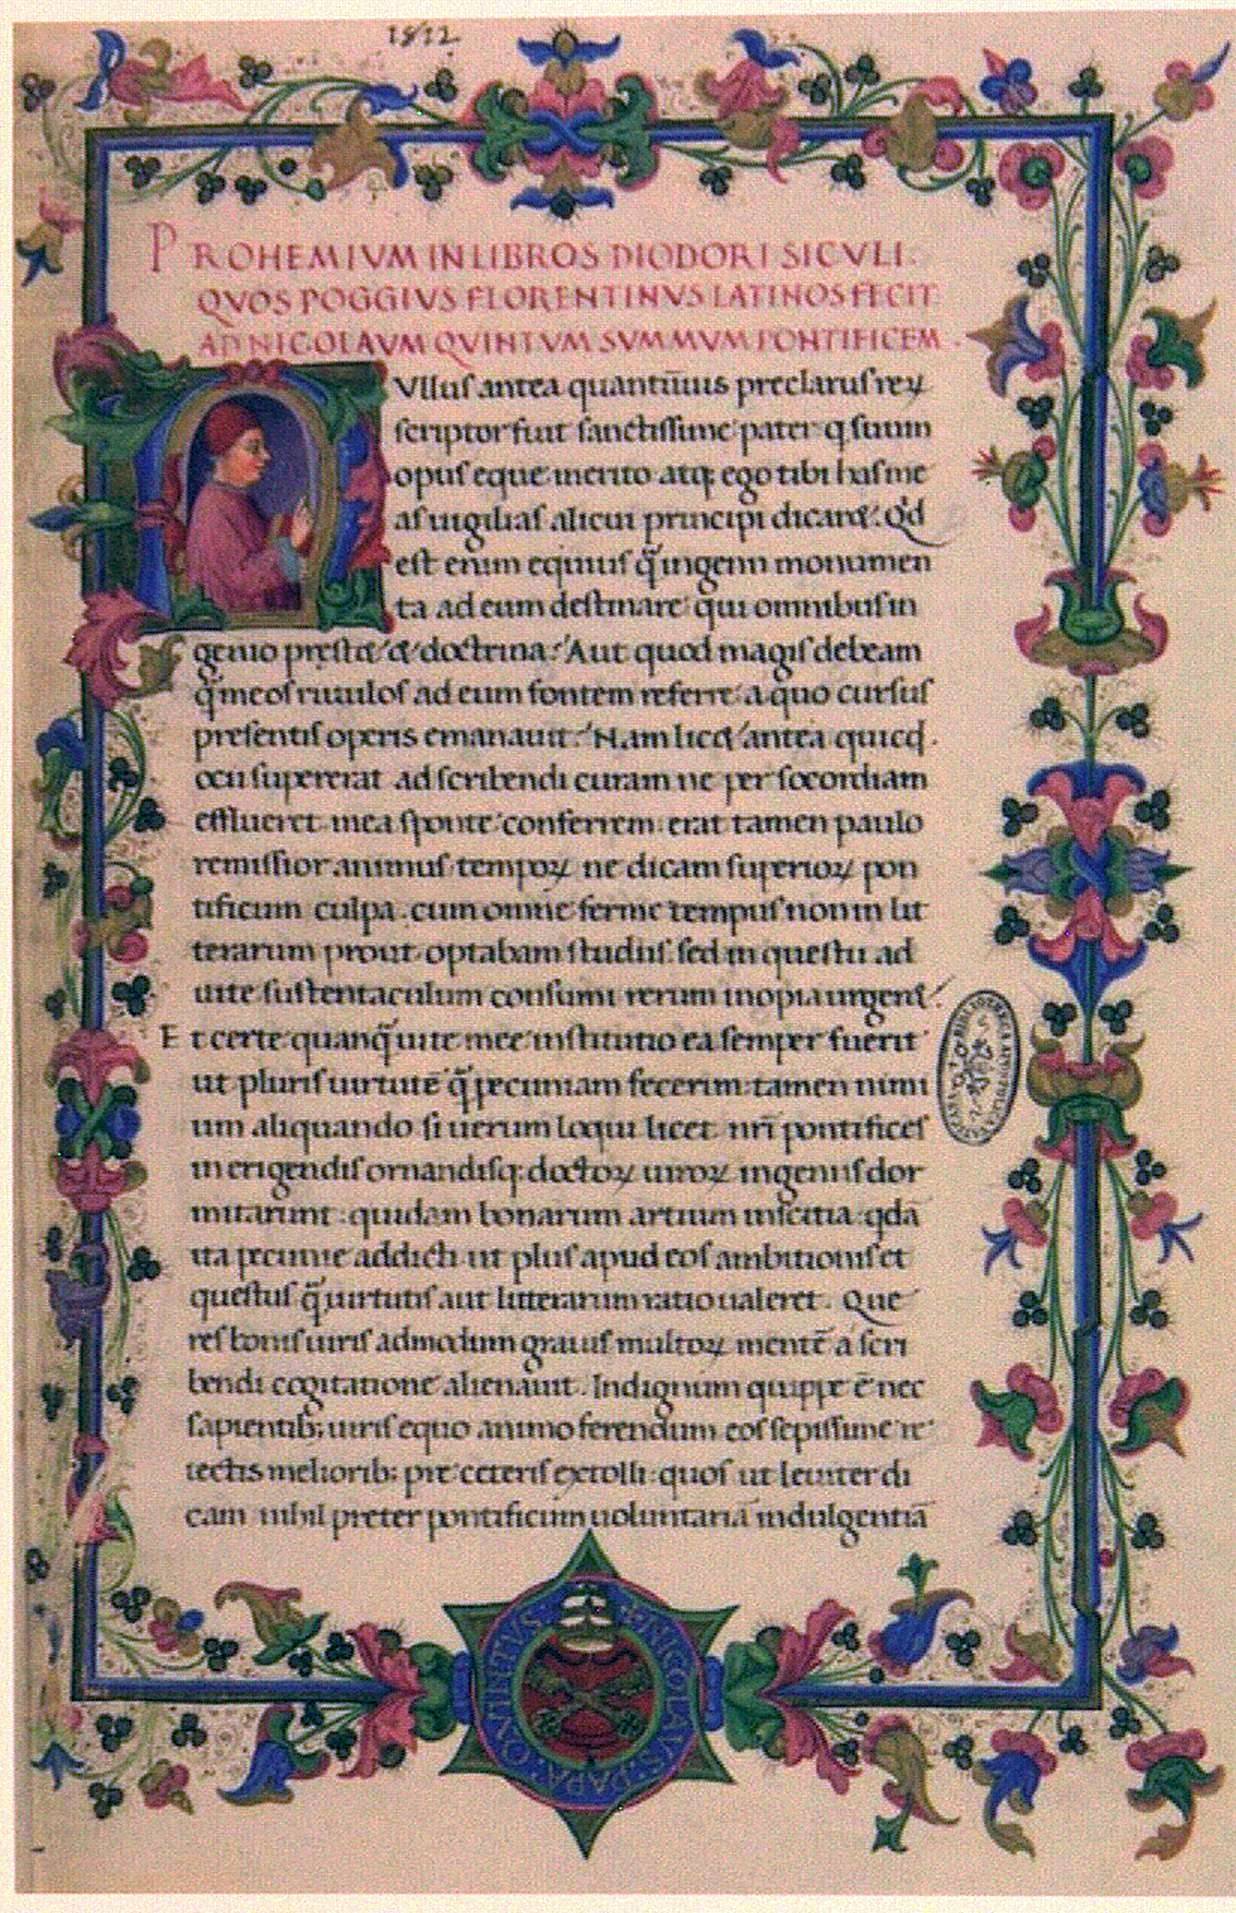 1812
PROHEMIVM IN LIBROS DIODORI SICVLI.
QVOS POGGIVS FLORENTINVS LATINOS FECIT
AD NICOLAVM QVINTVM SVMMVM PONTIFICEM.
Vlluſ antea quantūuis preclaruſ reꝝ
ſcriptor fuit ſanctiſſime pater q ſuum
opuſ eque merito atq; ego tibi haſ me
aſ uigiliaſ alicui principi dicarit. Qd
eſt enim equiuſ q̄ ingenii monumen
ta ad eum deſtinare qui omnibuſ in
genio preſtet & doctrina. Aut quod magiſ debeam
q̄ meoſ riuuloſ ad eum fontem referre a quo curſuſ
preſentiſ operis emanauit. Nam licet antea quicq̣
ocii ſupererat ad ſcribendi curam ne per ſocordiam
efflueret mea ſponte conferrem: erat tamen paulo
remiſſior animuſ tempoꝝ ne dicam ſuperioꝝ pon
tificum culpa. cum omne ferme tempuſ non in lit
terarum prout optabam ſtudiiſ. ſed in queſtu ad
uite ſuſtentaculum conſumi rerum inopia urgeret.
Et certe quanq̄ uite mee inſtitutio ea ſemper fuerit
ut pluriſ uirtutē q̄ pecuniam fecerim: tamen nimi
um aliquando ſi uerum loqui licet nr̄i pontificeſ
in erigendiſ ornandiſq; doctoꝝ uiroꝝ ingeniiſ dor
mitarunt: quidam bonarum artium inſcitia: qdā
ita pecunie addicti ut pluſ apud eoſ ambitioniſ et
queſtuſ q̄ uirtutiſ aut litterarum ratio ualeret. Que
reſ boniſ uiriſ admodum grauiſ multoꝝ mentē a ſcri
bendi cogitatione alienauit. Indignum quippe ē nec
ſapientib; uiriſ equo animo ferendum eoſ ſepiſſime re
iectis meliorib; pre ceteriſ extolli: quoſ ut leuiter di
cam nihil preter pontificum uoluntariā indulgentiā
NICOLAVS PAPA QVINTVS